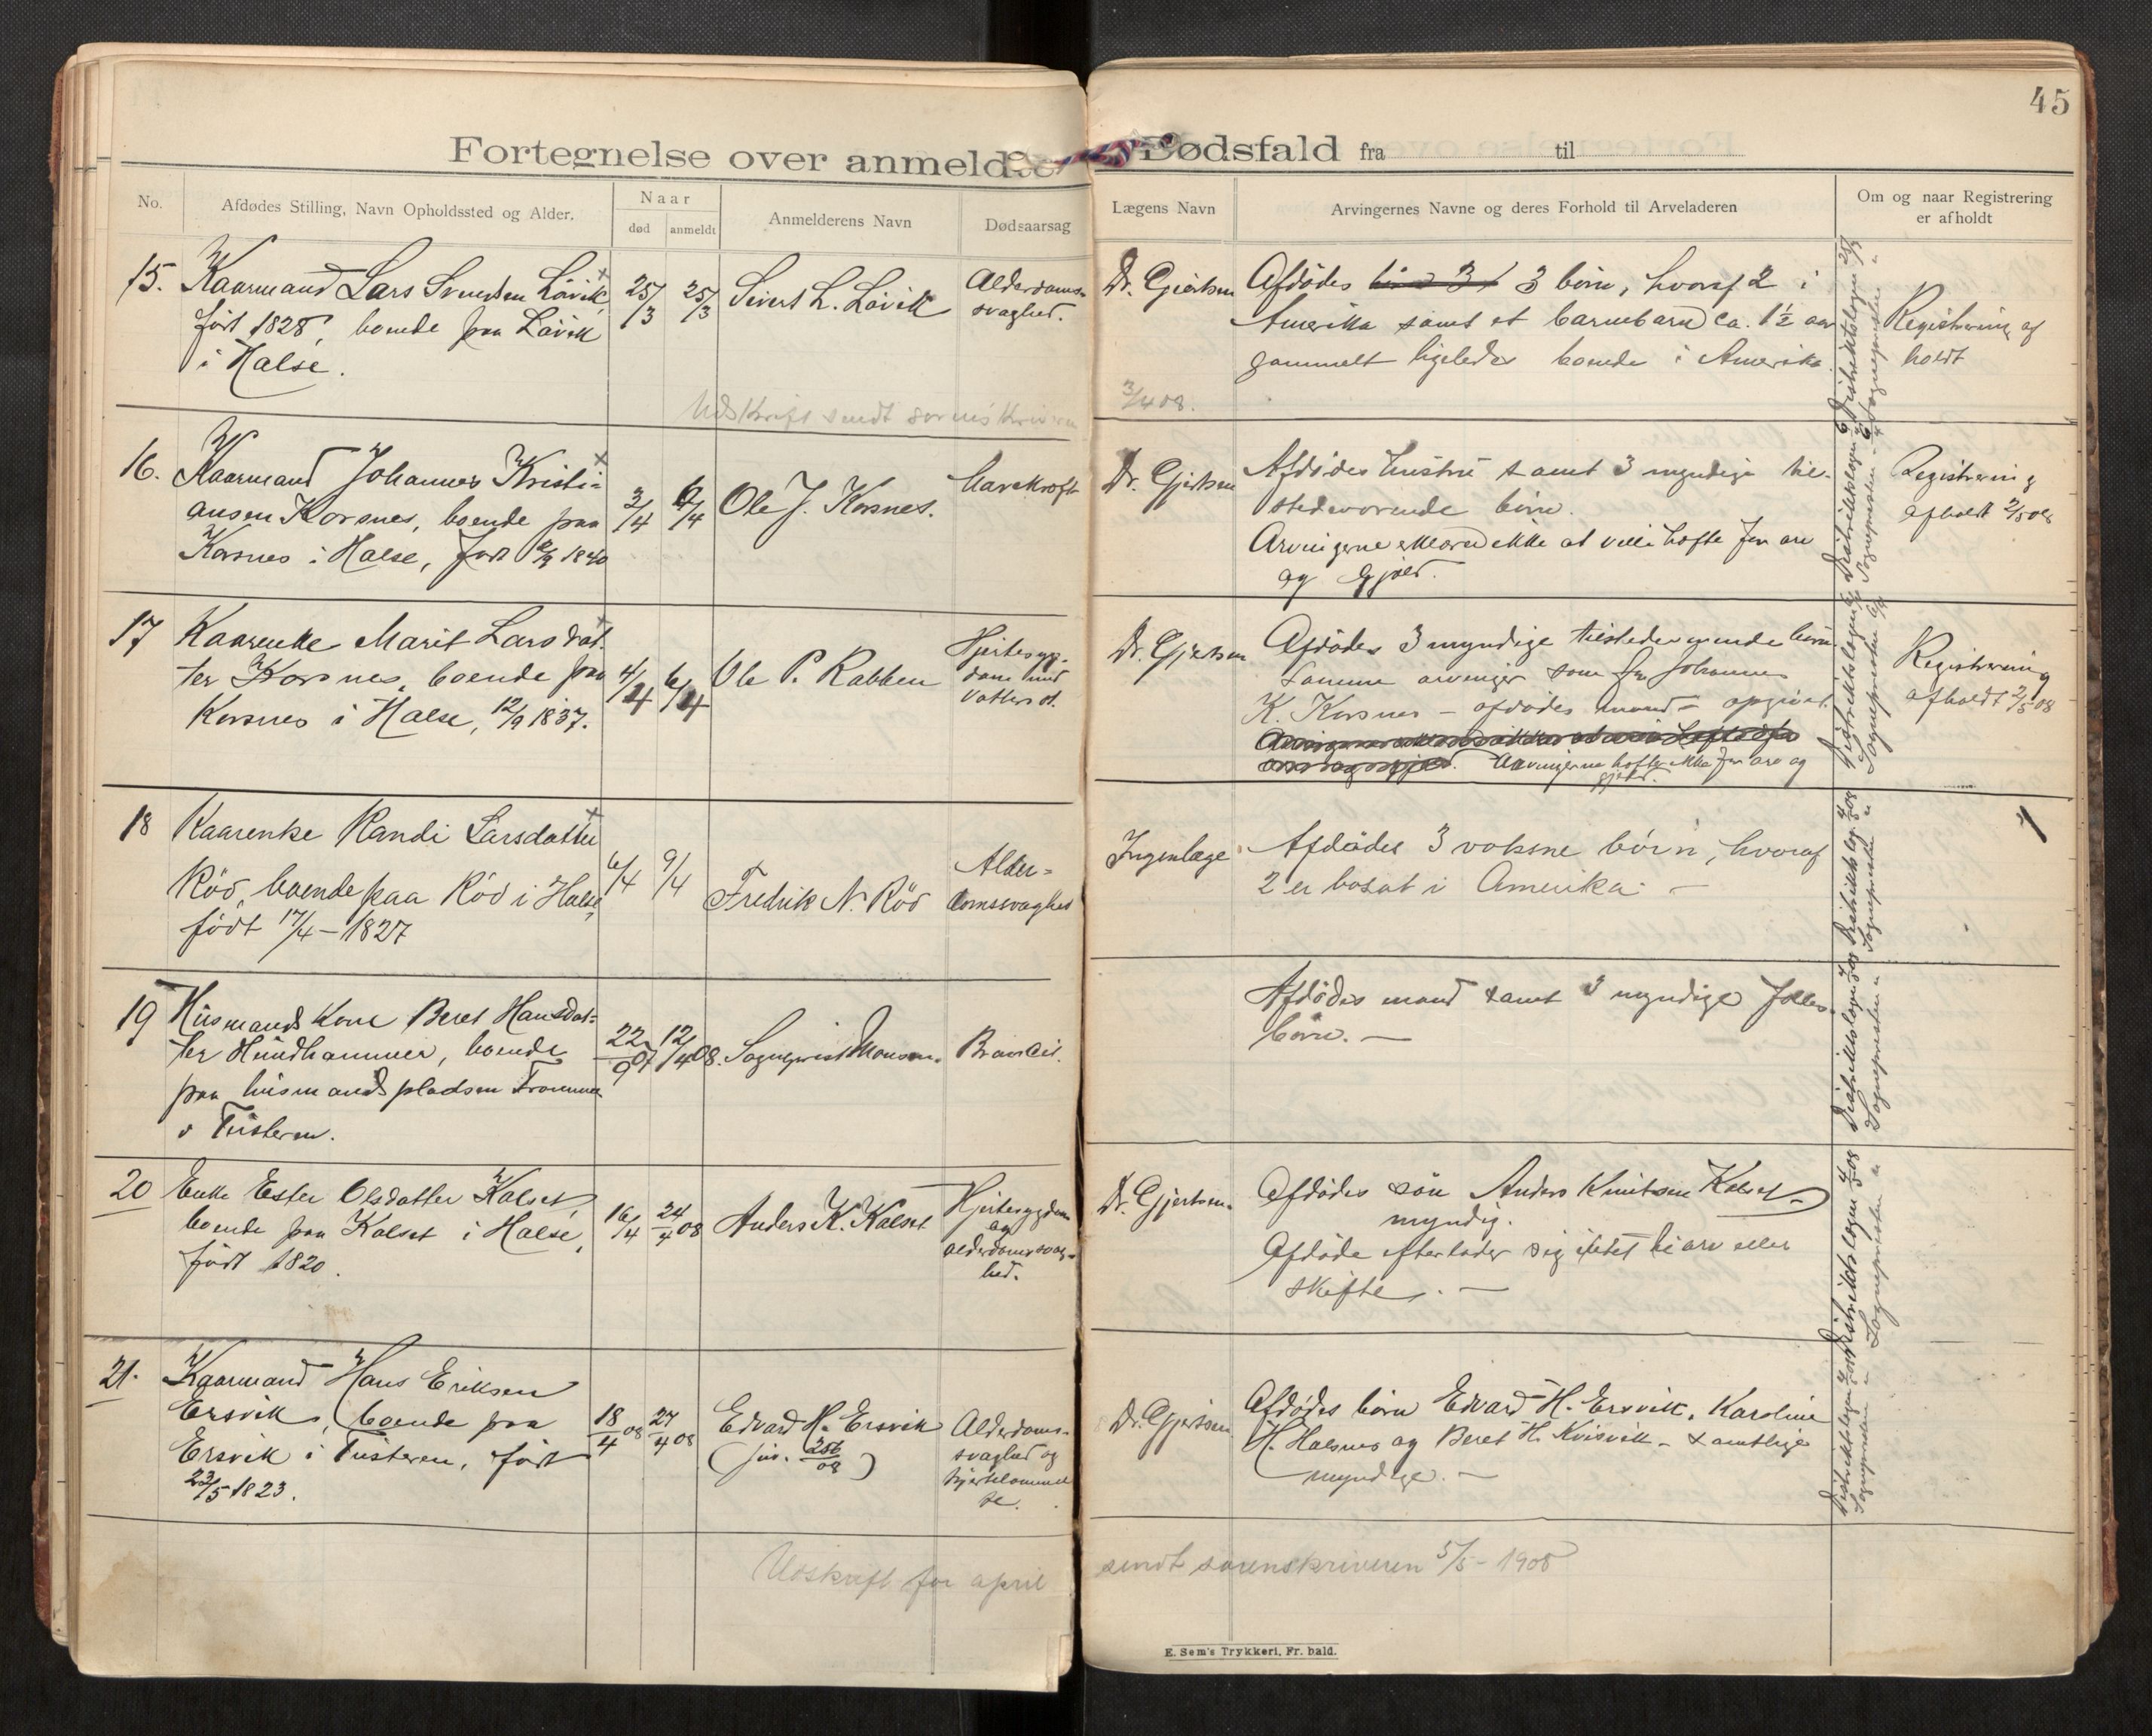 45
Fortegnelse over anmeldte Dødsfald fra til
No.
Afdødes Stilling, Navn Opholdssted og Alder.
Naar
død
anmeldt
Anmelderens Navn
Dødsaarsag
Lægens Navn
Arvingernes Navne og deres Forhold til Arveladeren
Om og naar Registrering
er afholdt
15.
Kaarmand Lars Svendsen Løvik,
født 1828, boende paa Løvik
i Halse.
25/3
25/3
Sivert L. Løvik
Alderdoms-
svaghed.
Dr. Gjertsen
Afdødes 3 børn, hvoraf 2 i
Amerika samt et barnebarn ca. 1½ aar
gammelt ligeledes boende i Amerika.
Registrering af
holdt
Udskrift sendt sorenskriveren
3/4 08.
16.
Kaarmand Johannes Kristi-
ansen Korsnes, boende paa
Korsnes i Halse, født 1840
3/4
6/4
Ole J. Korsnes.
Mavekræft
Dr. Gjertsen
Afdødes hustru samt 3 myndige til-
stedeværende børn.
Arvingerne erklæred ikke at ville hefte for arv
og gjæld.
Registrering
afholdt 2/5 08
17
Kaarenke Marit Larsdat-
ter Korsnes, boende paa
Korsnes i Halse, 12/9 1837.
4/4
6/4
Ole P. Rabben
Hjertesyg-
dom med
vattersot.
Dr. Gjertsen
Afdødes 3 myndige tilstedeværende børn
Samme arvinger som for Johannes
K. Korsnes – afdødes mand – opgivet.
Arvingerne hefter ikke for arv og
gjæld.
Registrering
afholdt 2/5 08
18
Kaarenke Randi Larsdatter
Rød, boende paa Rød i Halse,
født 17/4 – 1827
6/4
9/4
Fredrik N. Rød
Alder-
domssvaghed
Ingen læge
Afdødes 3 voksne børn, hvoraf
2 er bosat i Amerika. –
19
Husmands Kone Beret Hansdat-
ter Hundhammer, boende
paa husmandspladsen
i Tusteren.
22/9 07
12/4 08.
Sogneprest Monsen.
Dr
Afdødes mand samt 3 myndige fælles
børn. –
20
Enke Ester Olsdatter Kalset,
boende paa Kalset i Halse,
født 1820.
16/4
24/4 08
Anders K. Kalset
Hjertesygdom
og
alderdomssvag-
hed.
Dr. Gjertsen.
Afdødes søn Anders Knutsen Kalset –
myndig.
Afdøde efterlader sig intet til arv eller
skifte. –
21.
Kaarmand Hans Eriksen
Ersvik, boende paa
Ersvik i Tusteren, født
23/5 1823.
18/4 08
27/4 08
Edvard H. Ersvik
Alderdoms-
svaghed og
hjertelammel
se.
Dr. Gjertsen
Afdødes børn Edvard H. Ersvik, Karoline
H. Halsnes og Beret H. Kvisvik – samtlige
myndige. –
Udskrift for april
sendt sorenskriveren 5/5 – 1908
E. Sem's Trykkeri, Fr.hald.